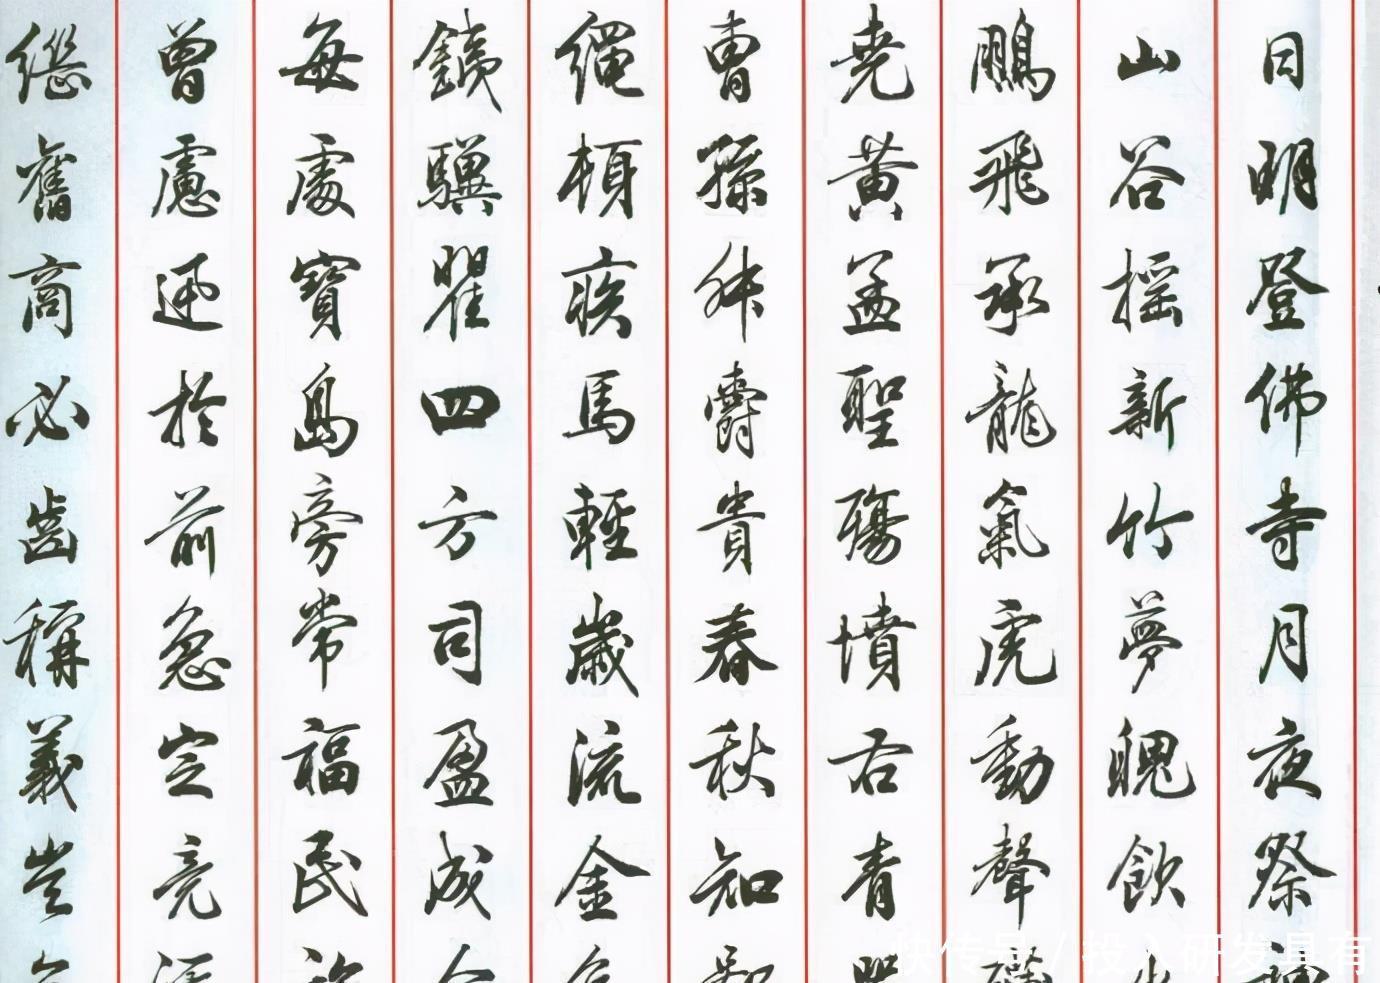 日明登佛寺月夜祭
山谷摇新竹夢醜飲
鵬飛承龍氣虎動聲
堯黃孟聖殤墳右青
曹孫舛爵貴春秋知
繩頓疾馬輕歲流金
鐵驥瞿四方司盈成
每處寶島旁常福民
曾慮迺於前急定竟
繼舊商必齒稱義豈
快传号/投入研发具有